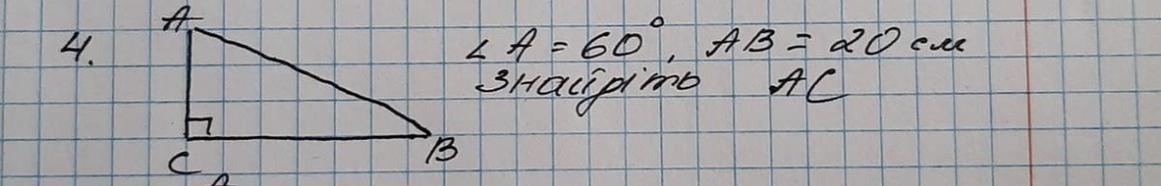 4.
A
C
B
∠A = 60°, AB = 20 см
Знайдіть AC